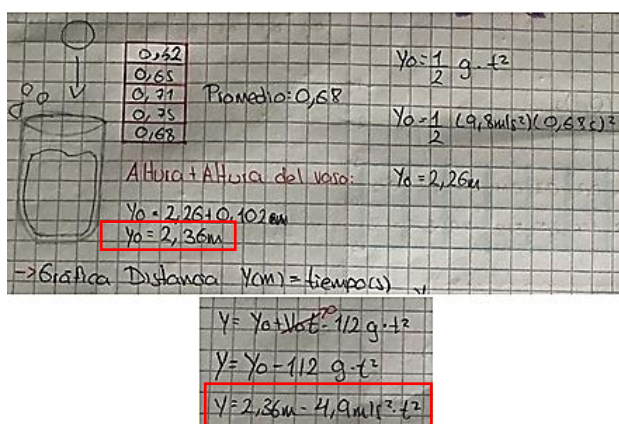 0,62
0,65
0,71
0,75
0,68
Promedio: 0,68
Yo = 1/2 g · t²
Yo = 1/2 (9,8m/s²)(0,68s)²
Yo = 2,26m
Altura + Altura del vaso:
Yo = 2,26 + 0,102
Yo = 2,36m
-> Gráfica Distancia Y(m) = tiempo(s)
Y = Yo + Vot - 1/2 g · t²
Y = Yo - 1/2 g · t²
Y = 2,36m - 4,9m/s² · t²